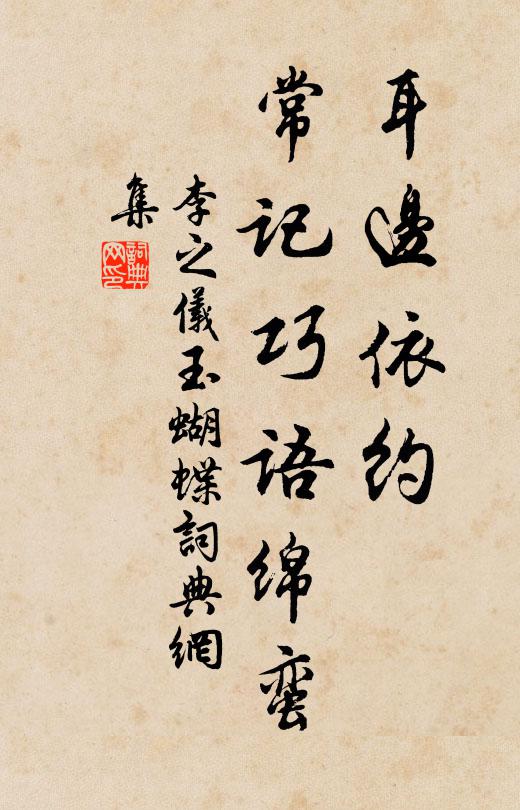 耳邊依约
常记巧语绵蛮
李之儀玉蝴蝶詞典網
集
詞典
网印